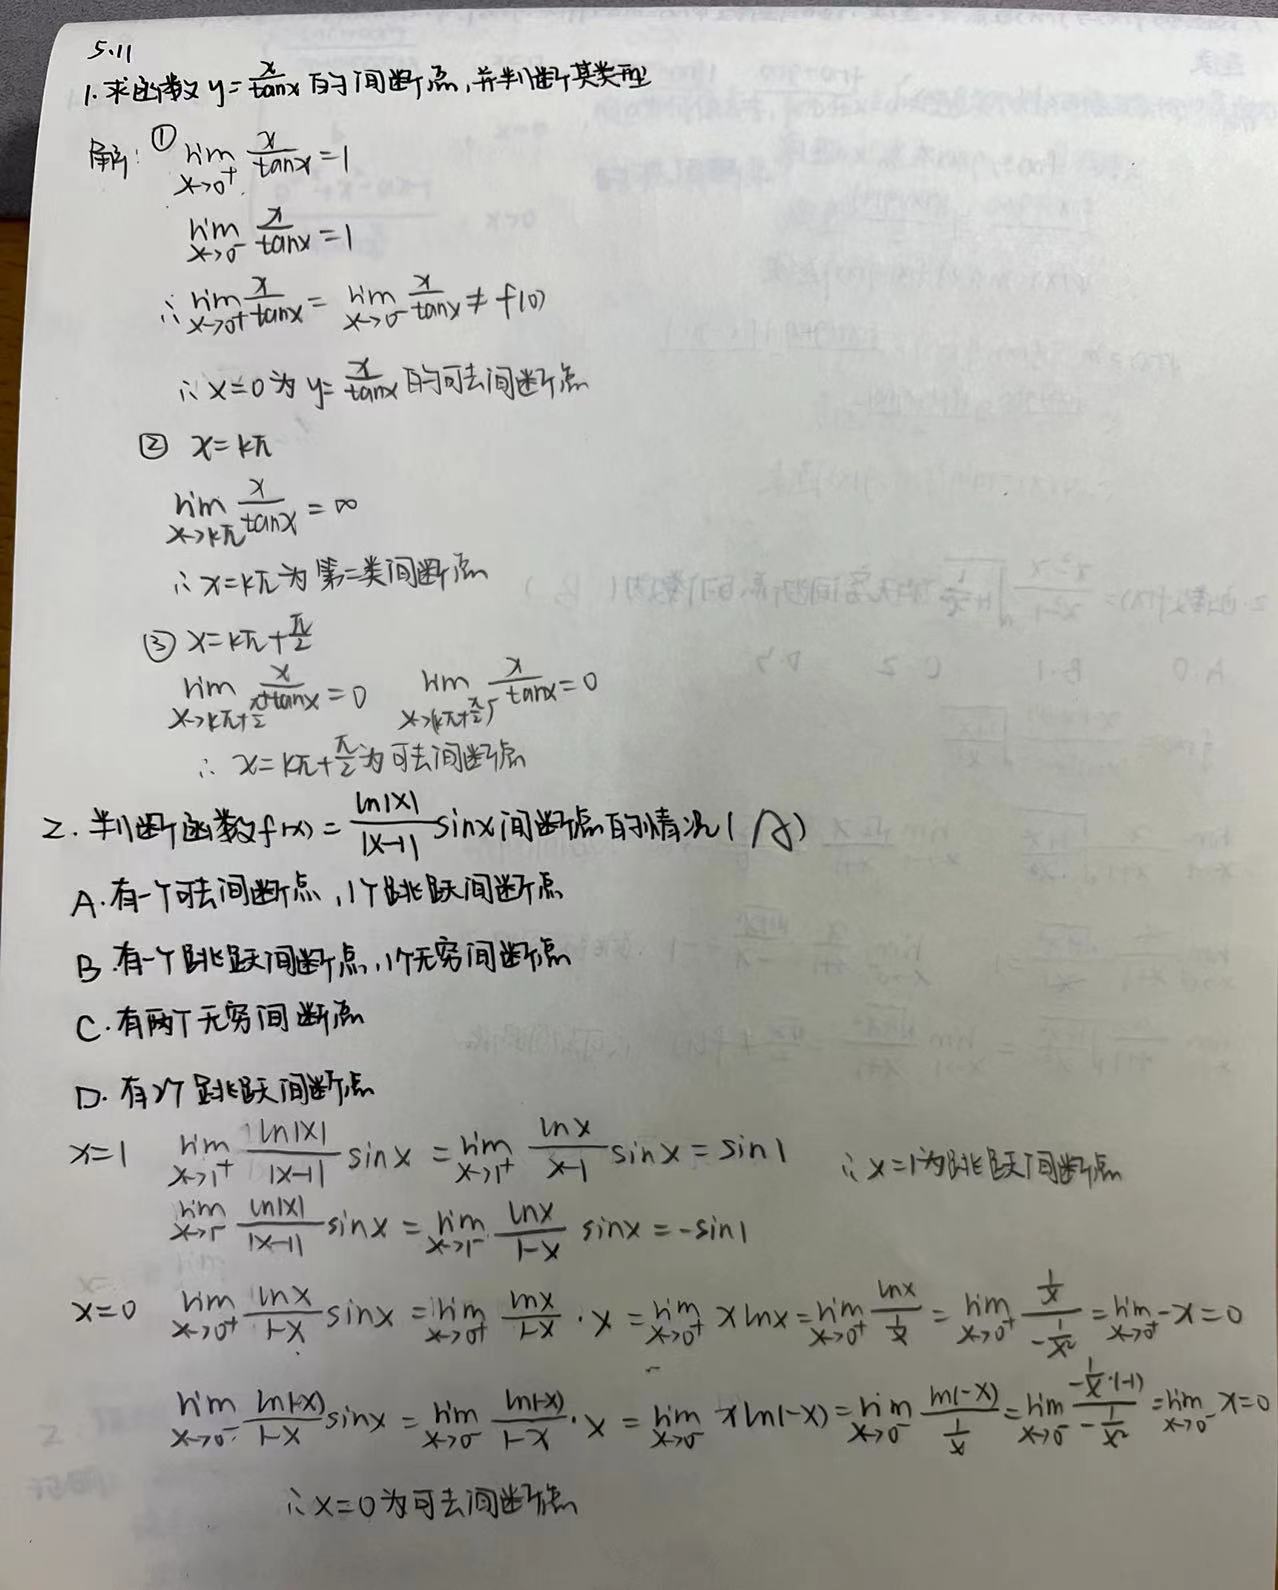 5.11
1. 求函数 y = x/tanx 的间断点,并判断其类型
解: ① lim x→0⁺ x/tanx = 1
lim x→0⁻ x/tanx = 1
∴ lim x→0⁺ x/tanx = lim x→0⁻ x/tanx ≠ f(0)
∴ x=0 为 y= x/tanx 的可去间断点
② x = kπ
lim x→kπ x/tanx = ∞
∴ x=kπ 为第二类间断点
③ x=kπ+π/2
lim x→kπ+π/2⁺ x/tanx = 0 lim x→(kπ+π/2)⁻ x/tanx = 0
∴ x=kπ+π/2 为可去间断点
2. 判断函数f(x) = ln|x|/|x-1| sinx 间断点的情况( A )
A. 有一个可去间断点, 1个跳跃间断点
B. 有一个跳跃间断点, 1个无穷间断点
C. 有两个无穷间断点
D. 有2个跳跃间断点
x=1 lim x→1⁺ ln|x|/|x-1| sinx = lim x→1⁺ lnx/x-1 sinx = sin1 ∴ x=1为跳跃间断点
lim x→1⁻ ln|x|/|x-1| sinx = lim x→1⁻ lnx/1-x sinx = -sin1
x=0 lim x→0⁺ lnx/1-x sinx = lim x→0⁺ lnx/1-x · x = lim x→0⁺ xlnx = lim x→0⁺ lnx/(1/x) = lim x→0⁺ (1/x)/(-1/x²) = lim x→0⁺ -x = 0
lim x→0⁻ ln(-x)/1-x sinx = lim x→0⁻ ln(-x)/1-x · x = lim x→0⁻ xln(-x) = lim x→0⁻ ln(-x)/(1/x) = lim x→0⁻ (-1/x·(-1))/(-1/x²) = lim x→0⁻ x = 0
∴ x=0为可去间断点